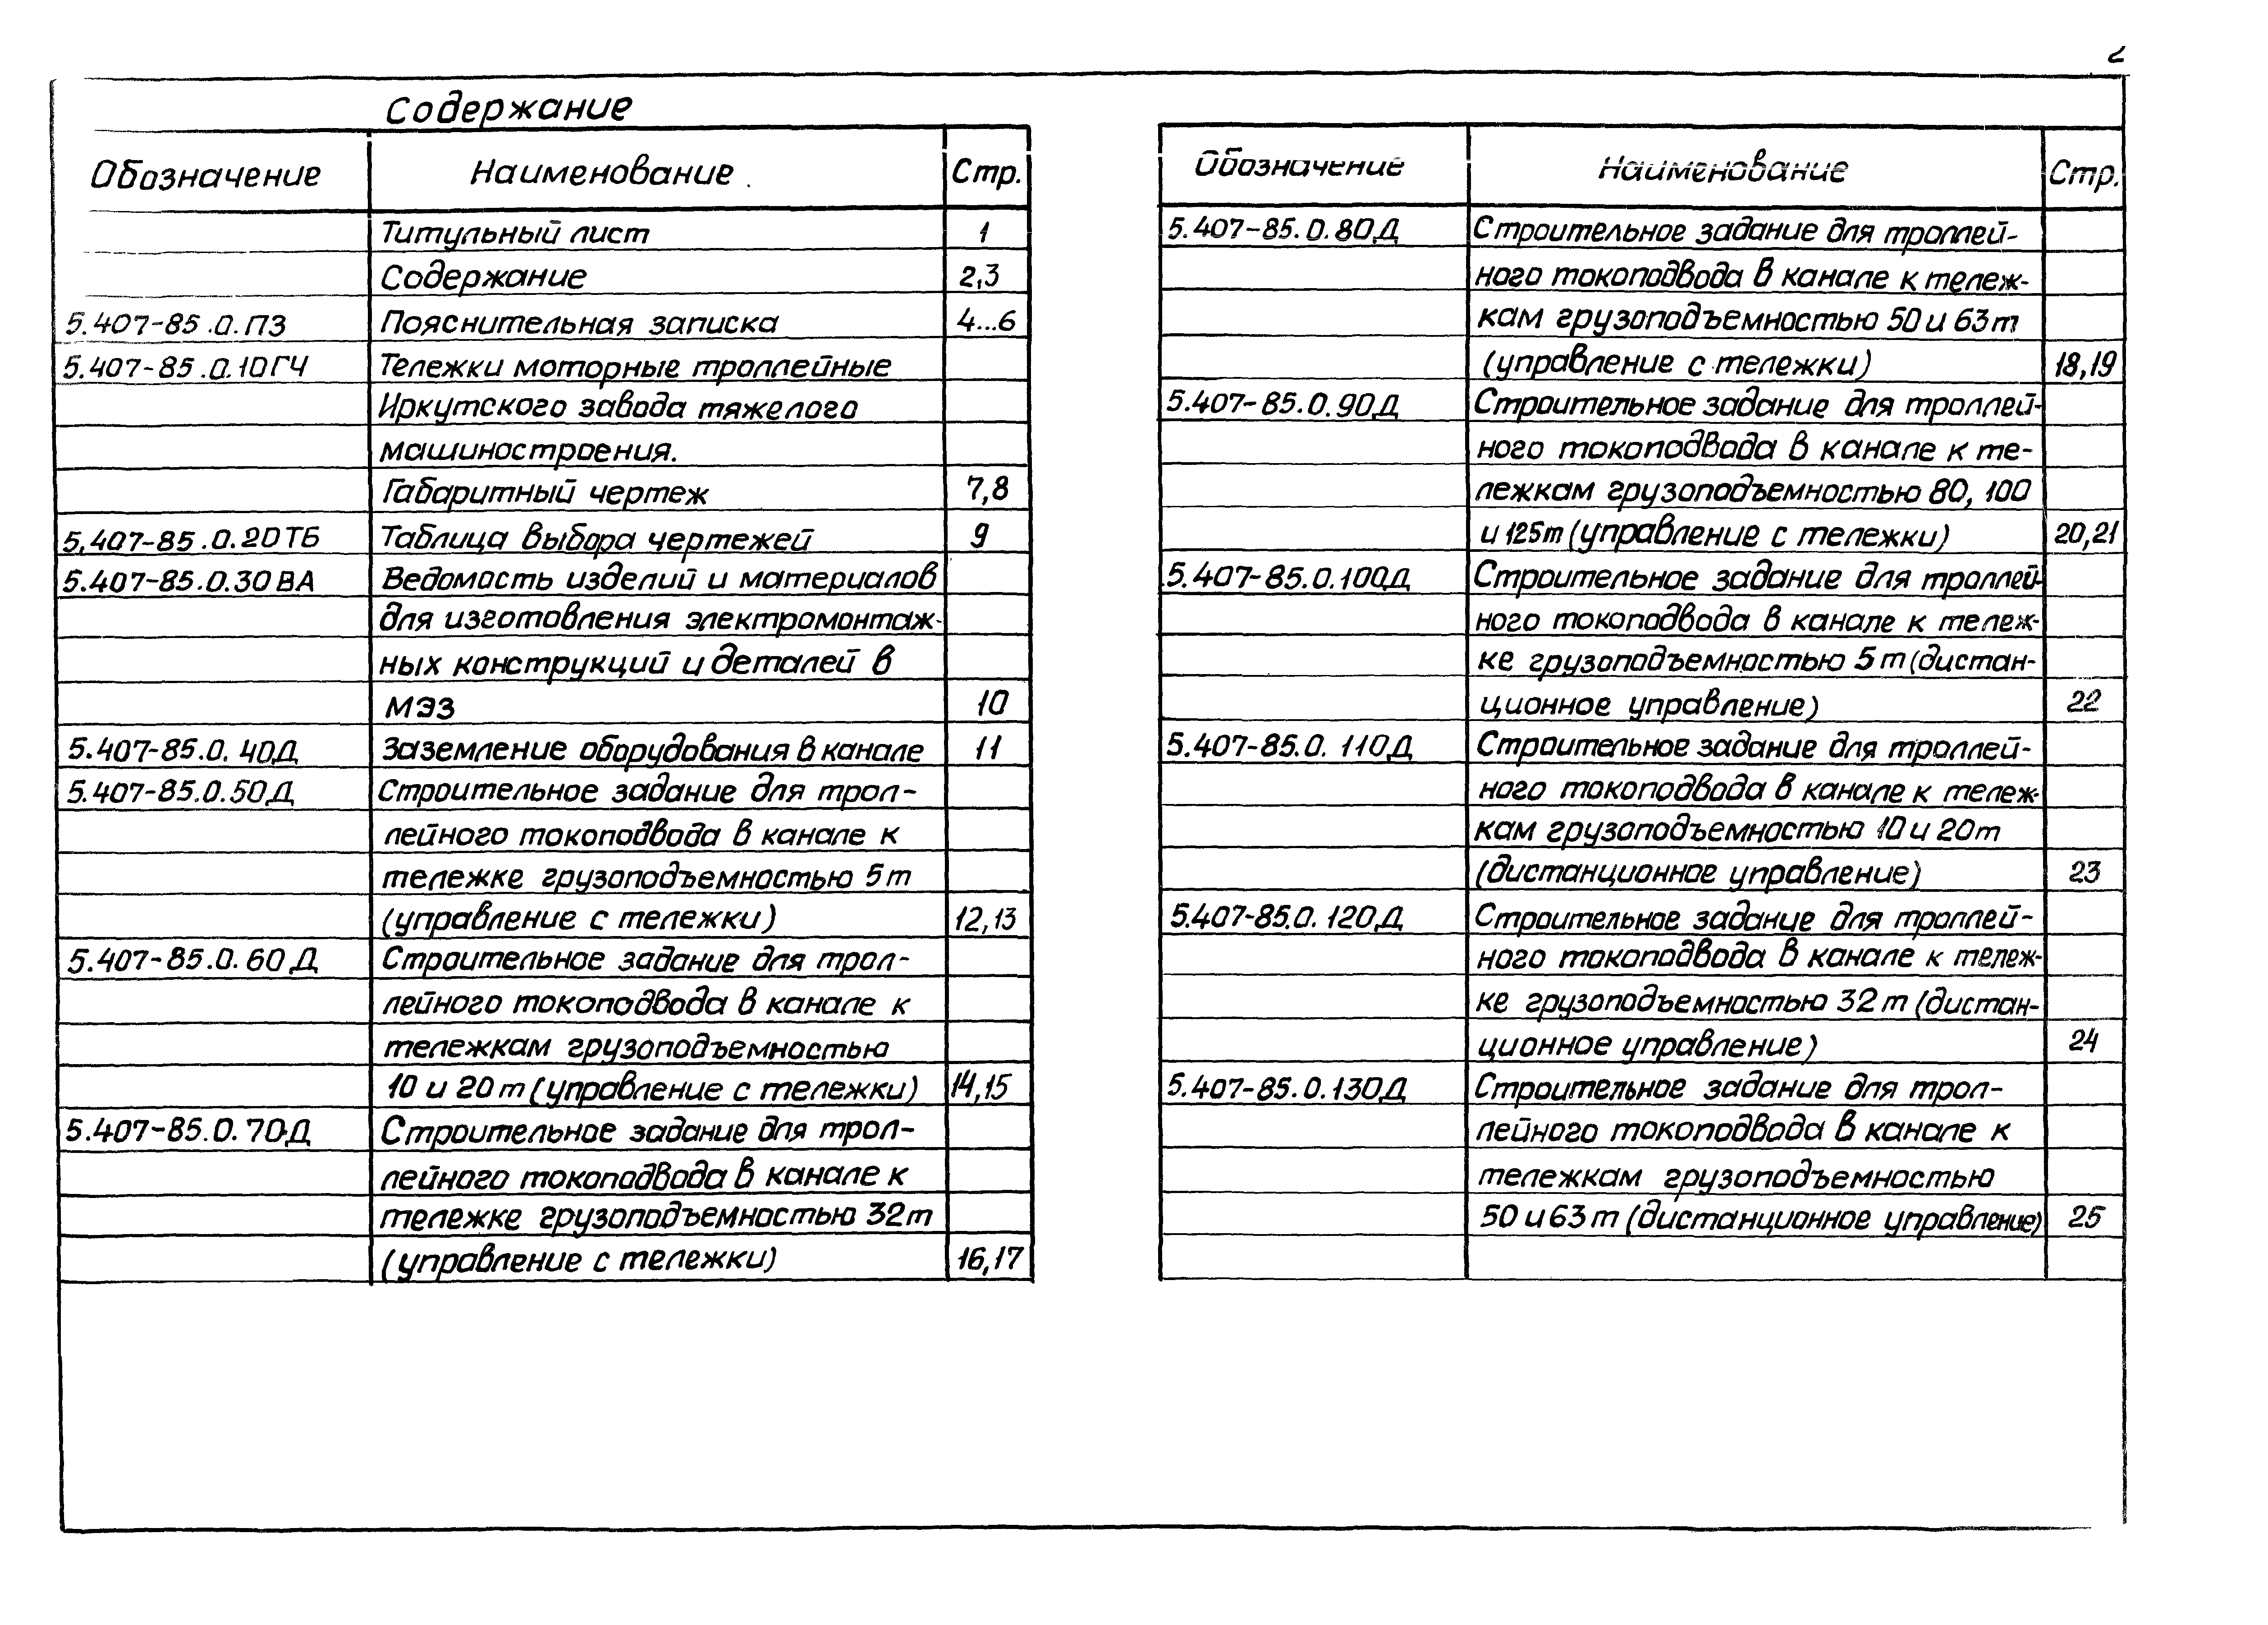 2
Содержание
Обозначение Наименование Стр.
Титульный лист 1
Содержание 2,3
5.407-85.0.ПЗ Пояснительная записка 4...6
5.407-85.0.10ГЧ Тележки моторные троллейные
Иркутского завода тяжелого
машиностроения.
Габаритный чертеж 7,8
5.407-85.0.20ТБ Таблица выбора чертежей 9
5.407-85.0.30ВА Ведомость изделий и материалов
для изготовления электромонтаж-
ных конструкций и деталей в
МЭЗ 10
5.407-85.0.40Д Заземление оборудования в канале 11
5.407-85.0.50Д Строительное задание для трол-
лейного токоподвода в канале к
тележке грузоподъемностью 5т
(управление с тележки) 12,13
5.407-85.0.60Д Строительное задание для трол-
лейного токоподвода в канале к
тележкам грузоподъемностью
10 и 20т (управление с тележки) 14,15
5.407-85.0.70Д Строительное задание для трол-
лейного токоподвода в канале к
тележке грузоподъемностью 32т
(управление с тележки) 16,17
Обозначение Наименование Стр.
5.407-85.0.80Д Строительное задание для троллей-
ного токоподвода в канале к тележ-
кам грузоподъемностью 50 и 63т
(управление с тележки) 18,19
5.407-85.0.90Д Строительное задание для троллей-
ного токоподвода в канале к те-
лежкам грузоподъемностью 80, 100
и 125т (управление с тележки) 20,21
5.407-85.0.100Д Строительное задание для троллей-
ного токоподвода в канале к тележ-
ке грузоподъемностью 5т (дистан-
ционное управление) 22
5.407-85.0.110Д Строительное задание для троллей-
ного токоподвода в канале к тележ-
кам грузоподъемностью 10 и 20т
(дистанционное управление) 23
5.407-85.0.120Д Строительное задание для троллей-
ного токоподвода в канале к тележ-
ке грузоподъемностью 32т (дистан-
ционное управление) 24
5.407-85.0.130Д Строительное задание для трол-
лейного токоподвода в канале к
тележкам грузоподъемностью
50 и 63т (дистанционное управление) 25